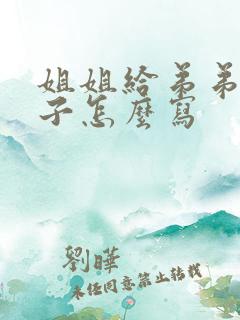 姐姐給弟弟
子怎麼寫
劉曄
未經同意禁止轉載